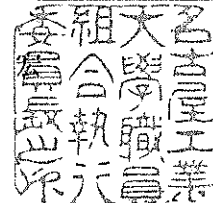 名古屋工業
大學職員
組合執行
委員長之印